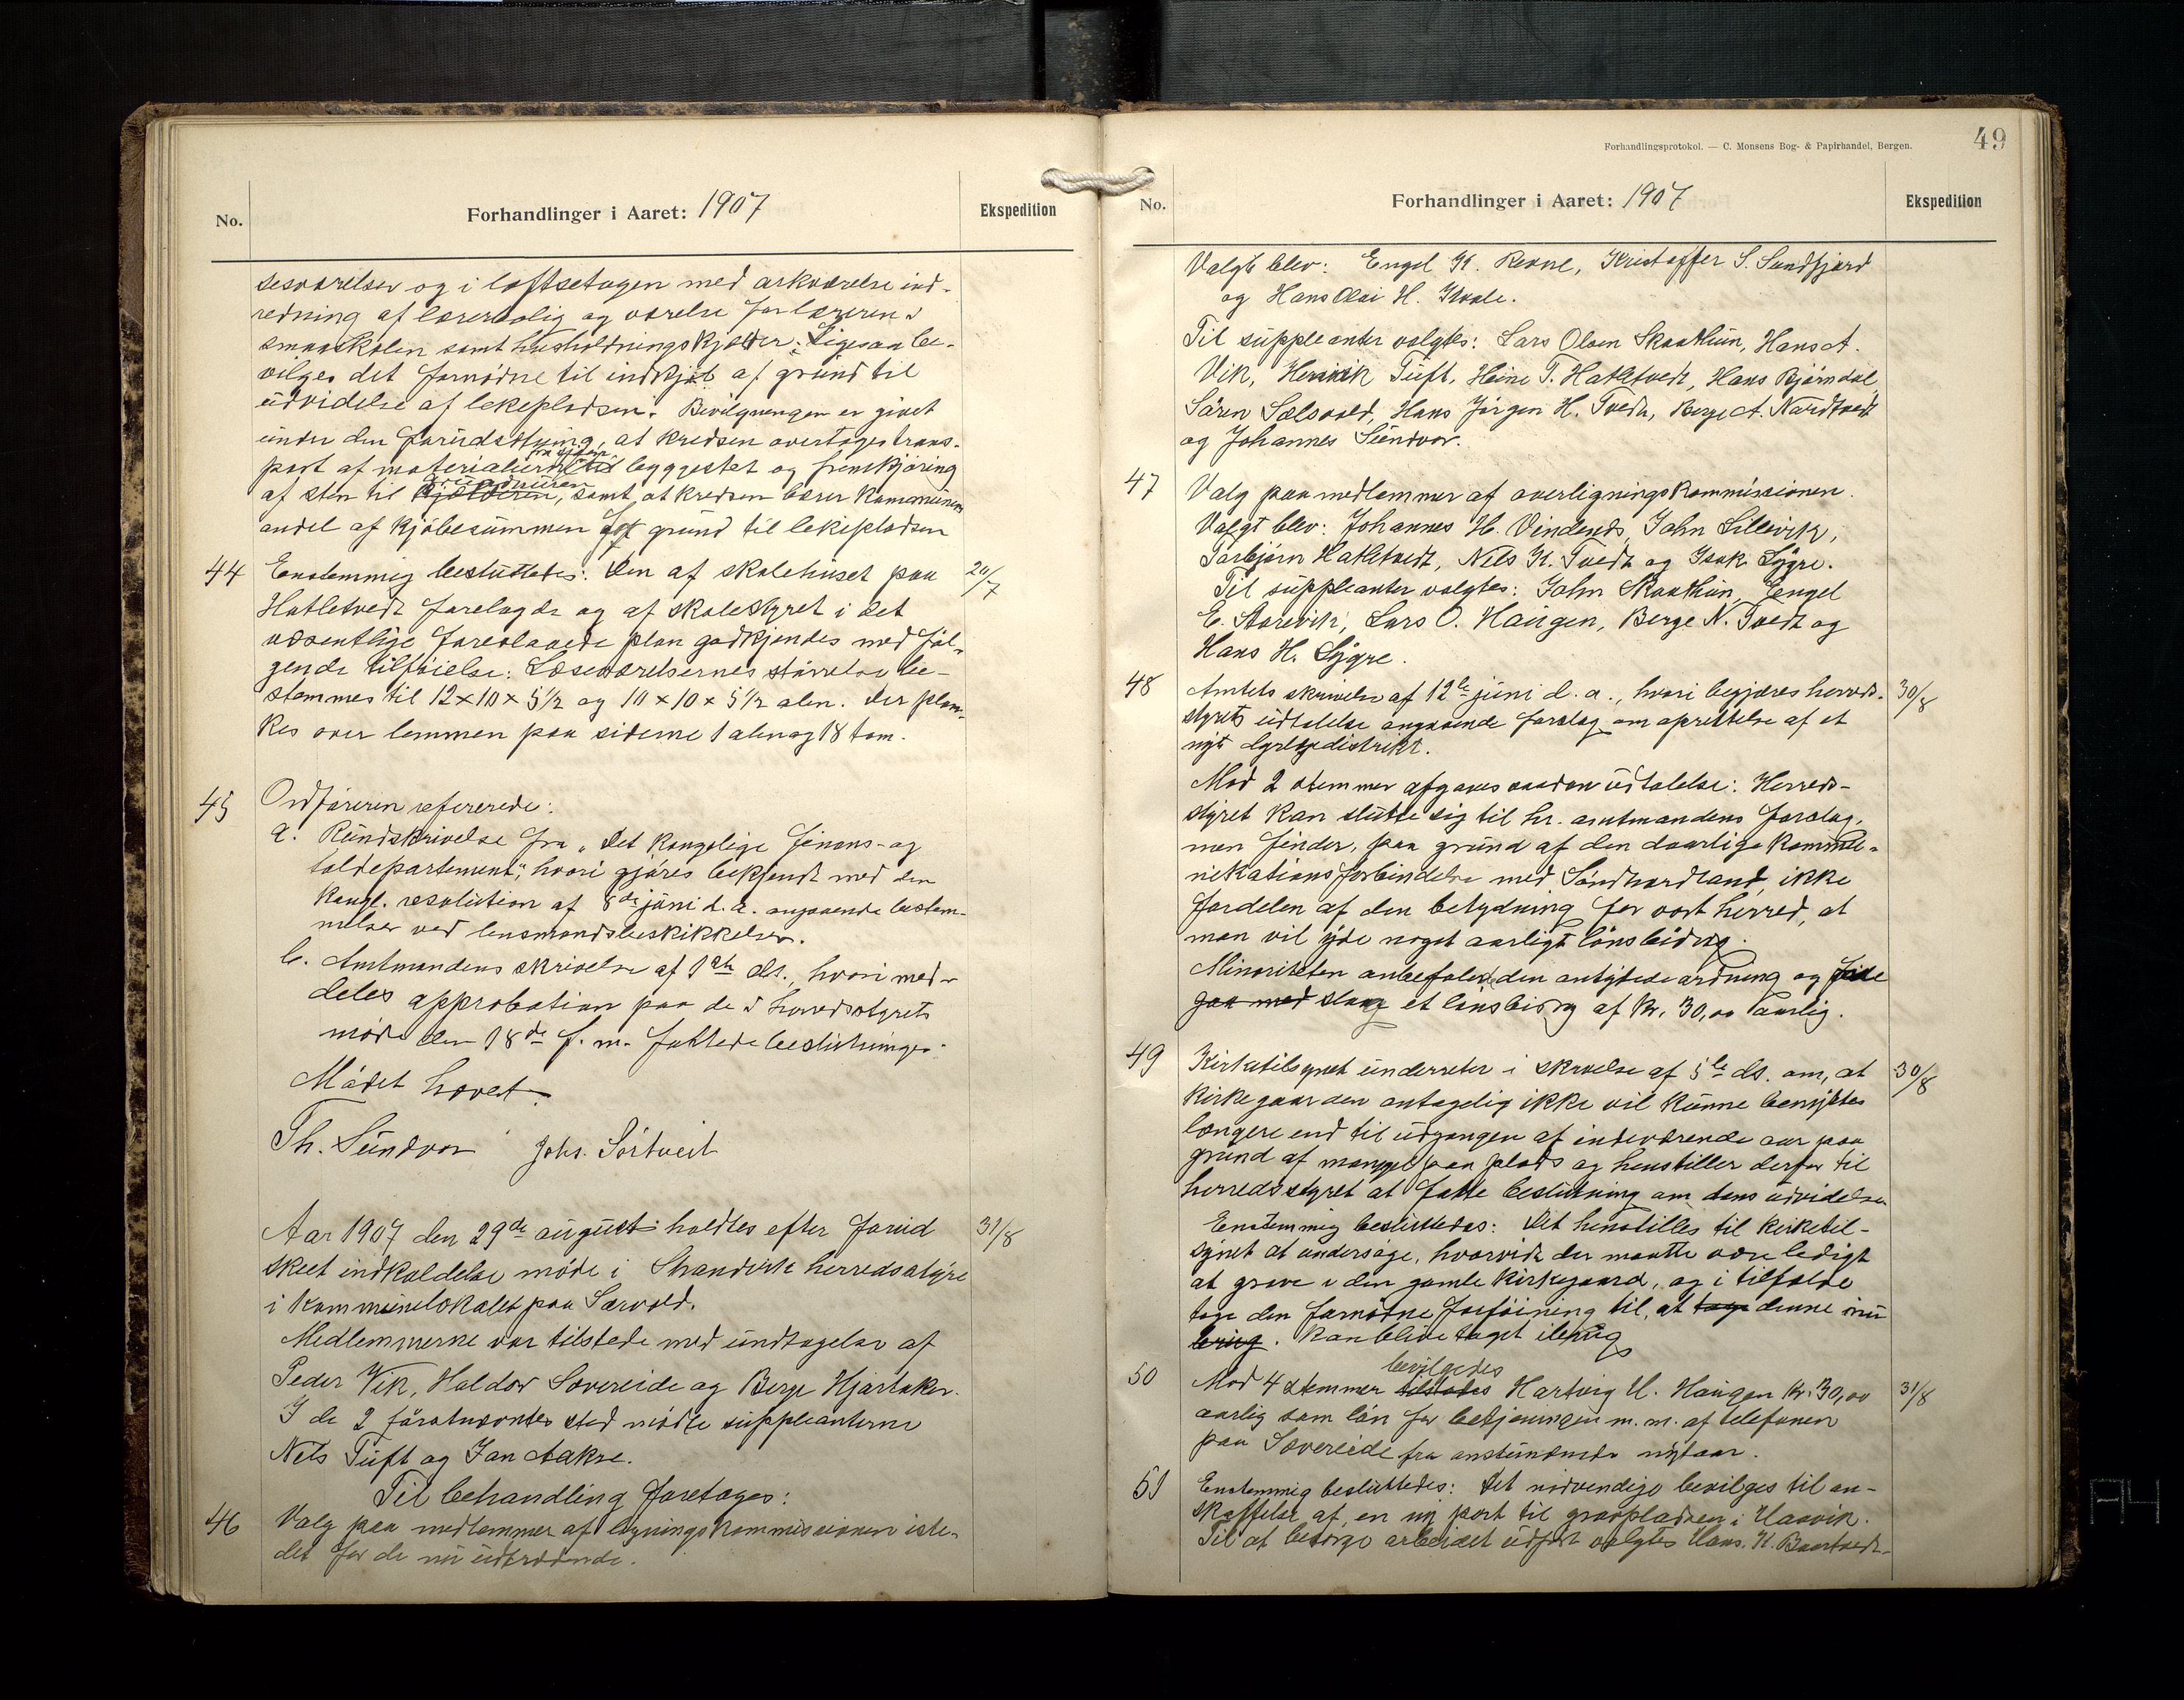 No.
Forhandlinger i Aaret: 1907
Ekspedition
sesværelser og i loftsetagen med arkværelse ind-
redning af lærerbolig og værelse for læreren i
smaaskolen samt husholdningskjælder. Ligesaa be-
vilges det fornødne til indkjøb af grund til
udvidelse af lekepladsen. Bevilgningen er givet
under den forudsætning, at kredsen overtager trans-
fra sjøen
port af materialierne til byggestet og fremkjøring
grundmuren
af sten til kjælderen, samt at kredsen bærer kommunens
andel af kjøbesummen for grund til lekepladsen
44 Enstemmig besluttedes: Den af skolehuset paa 20/7
Hatletvedt forelagde og af skolestyret i det
væsentlige foreslaaede plan godkjendes med føl-
gende tilføielse: Læseværelsernes størrelse be-
stemmes til 12 x 10 x 5 1/2 og 10 x 10 x 5 1/2 alen. Der plan-
kes over lemmen paa siderne 1 alen og 18 tom.
45 Ordføreren refererede:
a. Rundskrivelse fra "Det kongelige finans- og
tolddepartement", hvori gjøres bekjendt med den
kongl. resolution af 8de juni d. a. angaaende bestem-
melser ved lensmandsbeskikkelser.
b. Amtmandens skrivelse af 1ste ds., hvori med-
deles approbation paa de i herredsstyrets
møde den 18de f. m. fattede beslutninger.
Mødet hævet.
Th. Sundvor Johs. Sørtveit
Aar 1907 den 29de august holdtes efter forud 31/8
skeet indkaldelse møde i Strandvik herredsstyre
i kommunelokalet paa Sævold.
Medlemmerne var tilstede med undtagelse af
Peder Vik, Haldor Sævereide og Berge Hjartaker.
I de 2 førstnævntes sted mødte suppleanterne
Nels Tuft og Jan Aakre.
Til behandling foretoges:
46 Valg paa medlemmer af ligningskommissionen iste-
det for de nu udtrædende.
Forhandlingsprotokol. — C. Monsens Bog- & Papirhandel, Bergen.
49
No.
Forhandlinger i Aaret: 1907
Ekspedition
Valgt blev: Engel K. Revne, Kristoffer S. Sundfjord
og Hans Olai H. Kvale.
Til suppleanter valgtes: Lars Olsen Skaathun, Hans A.
Vik, Henrik Tuft, Heine T. Hatletvedt, Hans Bjørndal,
Søren Sælsvold, Hans Jørgen H. Tvedt, Berge A. Nordtvedt
og Johannes Sundvor.
47 Valg paa medlemmer af overligningskommissionen.
Valgt blev: Johannes H. Vindenes, John Lillevik,
Torbjørn Hatletvedt, Nels K. Tvedt og Isak Lygre.
Til suppleanter valgtes: John Skaathun, Engel
E. Aarevik, Lars O. Haugen, Berge N. Tvedt og
Hans H. Lygre.
48 Amtets skrivelse af 12te juni d. a., hvori begjæres herreds- 30/8
styrets udtalelse angaaende forslag om oprettelse af et
nyt dyrlægedistrikt.
Mod 2 stemmer afgaves saadan udtalelse: Herreds-
styret kan slutte sig til hr. amtmandens forslag,
men finder, paa grund af den daarlige kommu-
nikationsforbindelse med Søndhordland, ikke
fordelen af den betydning for vort herred, at
man vil yde noget aarligt lønsbidrag.
Minoriteten anbefaled den antydede ordning og
gaa med et lønsbidrag af kr. 30,00 aarlig.
49 Kirketilsynet underretter i skrivelse af 5te ds. om, at 30/8
kirkegaarden antagelig ikke vil kunne benyttes
længere end til udgangen af indeværende aar paa
grund af mangel paa plads og henstiller derfor til
herredsstyret at fatte beslutning om dens udvidelse.
Enstemmig besluttedes: Det henstilles til kirketil-
synet at undersøge, hvorvidt der maatte være ledigt
at grave i den gamle kirkegaard, og i tilfælde
tage den fornødne forføining til, at tage denne i nu
bring. kan blive taget ibrug
bevilgedes
50 Mod 4 stemmer tilstodes Hartvig H. Haugen kr. 30,00 31/8
aarlig som løn for betjeningen m. m. af telefonen
paa Sævereide fra anstundende nytaar.
51 Enstemmig besluttedes: Det nødvendige bevilges til an-
skaffelse af en ny port til gravpladsen i Haavik.
Til at besørge arbeidet udført valgtes Hans K. Baartvedt.